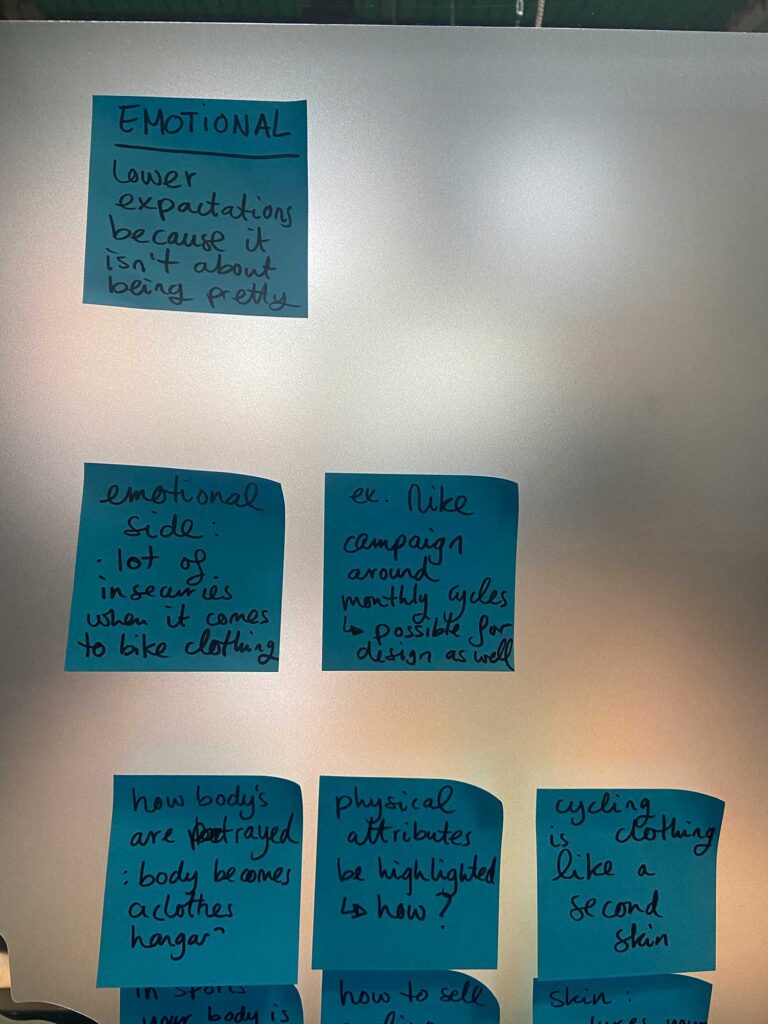 EMOTIONAL
lower
expactations
because it
isn't about
being pretty
emotional
side:
· lot of
insecurries
when it comes
to bike clothing
ex. Nike
campaign
around
monthly cycles
↳ possible for
design as well
how body's
are portrayed
: body becomes
a clothes
hangar
physical
attributes
be highlighted
↳ how?
cycling
is clothing
like a
second
skin
in sports
your body is
how to sell
skin: